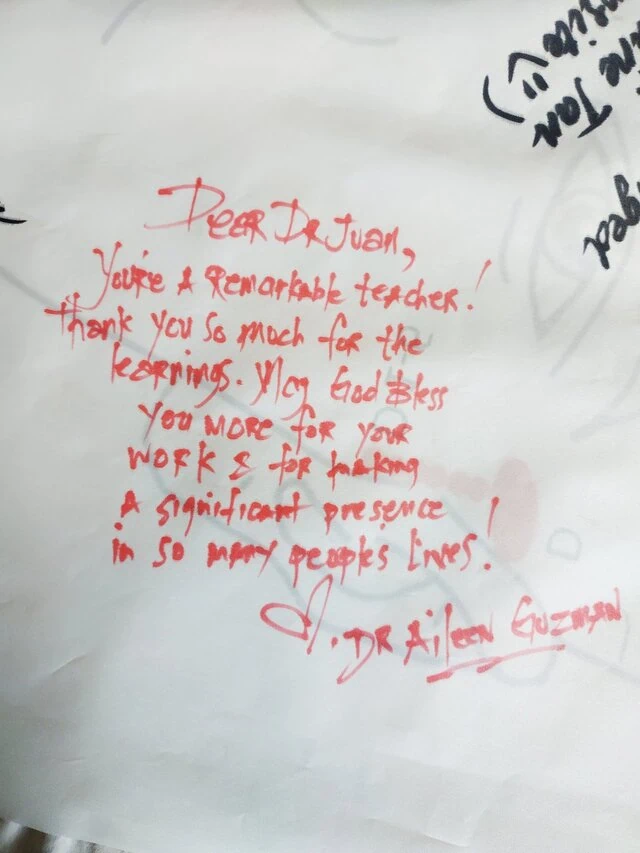 Dear Dr Juan,
You're A Remarkable teacher!
Thank you so much for the
learnings. May God Bless
you more for your
work & for making
A significant presence
in so many peoples lives!
DR Aileen Guzman
Tan